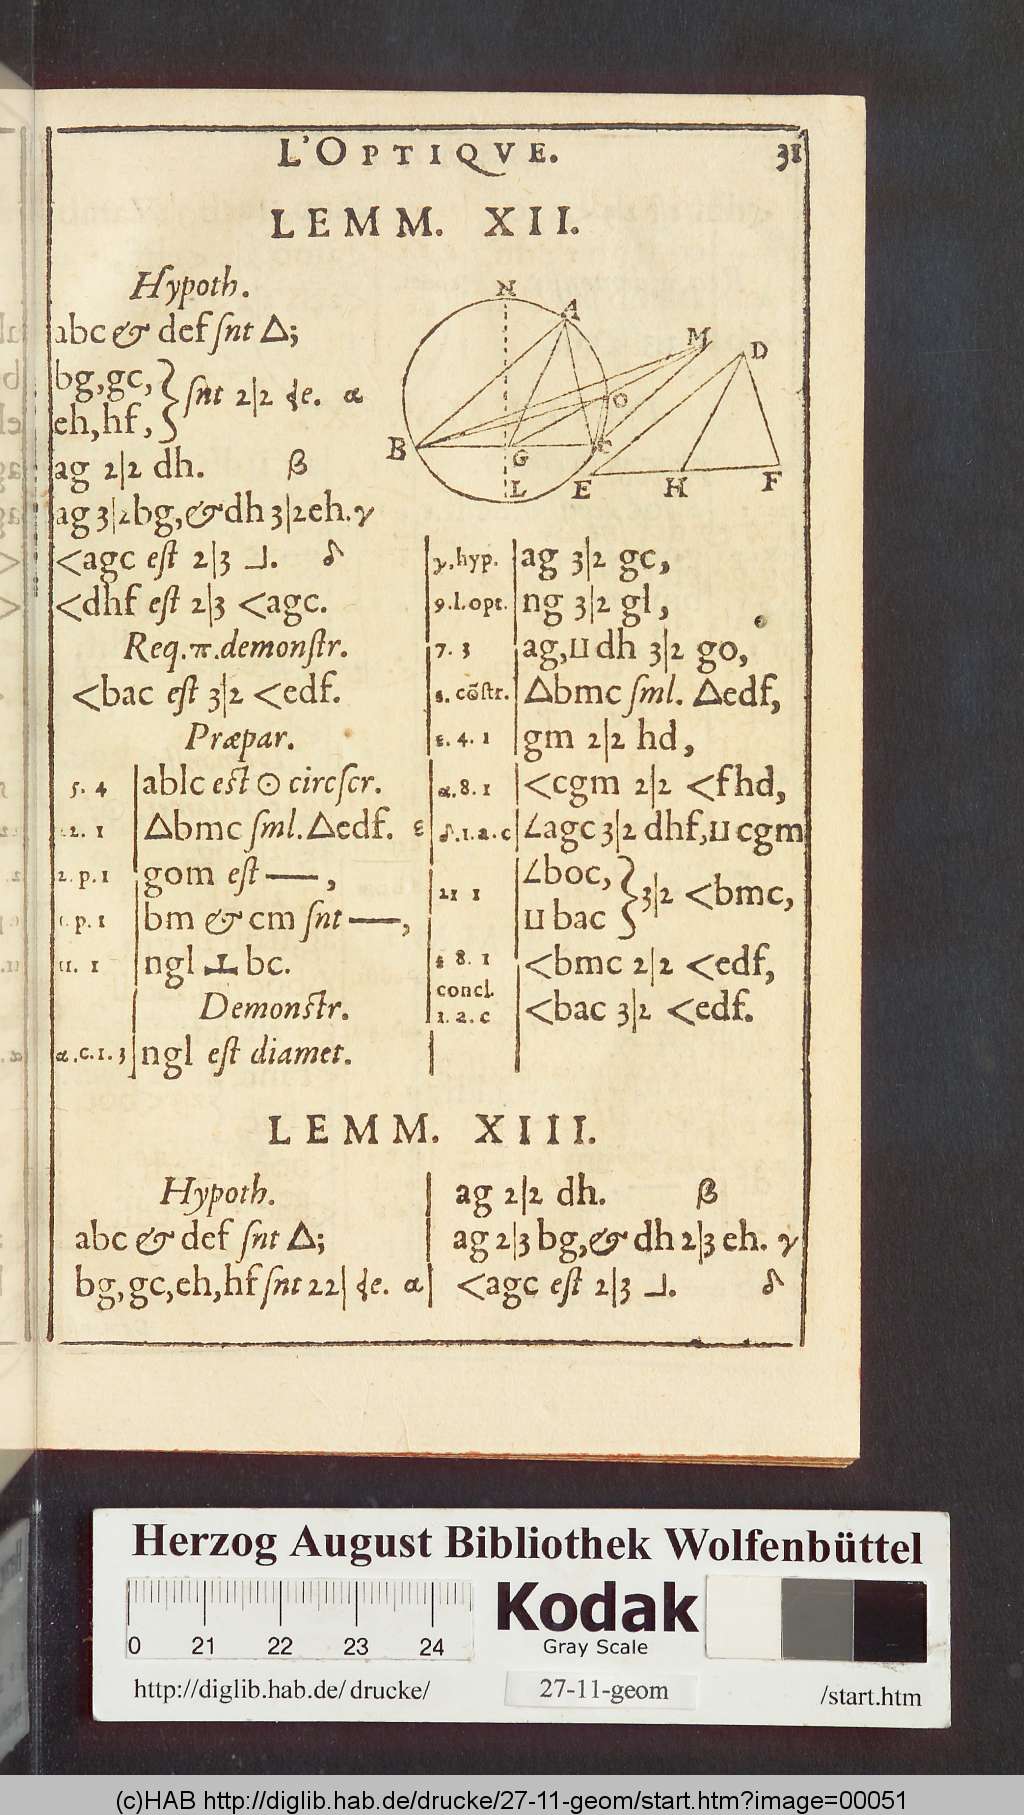 L'OPTIQVE. 31
LEMM. XII.
Hypoth.
abc & def snt Δ;
bg, gc,
eh, hf,
} snt 2|2 de. α
ag 2|2 dh. β
ag 3|2 bg, & dh 3|2 eh. γ
<agc est 2|3 ⅃. δ
<dhf est 2|3 <agc.
Req. π. demonstr.
<bac est 3|2 <edf.
Præpar.
5. 4 | ablc est ⊙ circscr.
2. 1 | Δbmc sml. Δedf. ε
2. p. 1 | gom est —,
1. p. 1 | bm & cm snt —,
11. 1 | ngl ⊥ bc.
Demonstr.
α. c. 1. 3 | ngl est diamet.
N
A
M
D
O
B
G
C
L
E
H
F
γ. hyp. | ag 3|2 gc,
9. l. opt. | ng 3|2 gl,
7. 3 | ag, ⊔ dh 3|2 go,
ε. cõstr. | Δbmc sml. Δedf,
ε. 4. 1 | gm 2|2 hd,
α. 8. 1 | <cgm 2|2 <fhd,
δ. 1. a. c | ∠agc 3|2 dhf, ⊔ cgm
21 1 | ∠boc,
⊔ bac
} 3|2 <bmc,
8. 1 | <bmc 2|2 <edf,
concl.
1. a. c | <bac 3|2 <edf.
LEMM. XIII.
Hypoth.
abc & def snt Δ;
bg, gc, eh, hf snt 22| de. α
ag 2|2 dh. β
ag 2|3 bg, & dh 2|3 eh. γ
<agc est 2|3 ⅃. δ
Herzog August Bibliothek Wolfenbüttel
0 21 22 23 24
Kodak
Gray Scale
http://diglib.hab.de/drucke/ 27-11-geom /start.htm
(c)HAB http://diglib.hab.de/drucke/27-11-geom/start.htm?image=00051